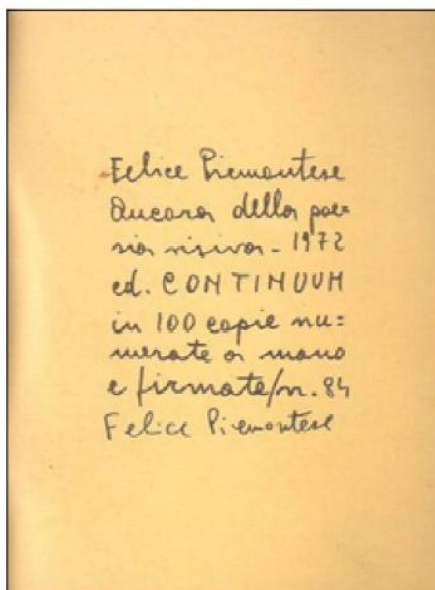 Felice Piemontese
Ancora della poe=
sia visiva - 1972
ed. CONTINUUM
in 100 copie nu=
merate a mano
e firmate/n. 84
Felice Piemontese